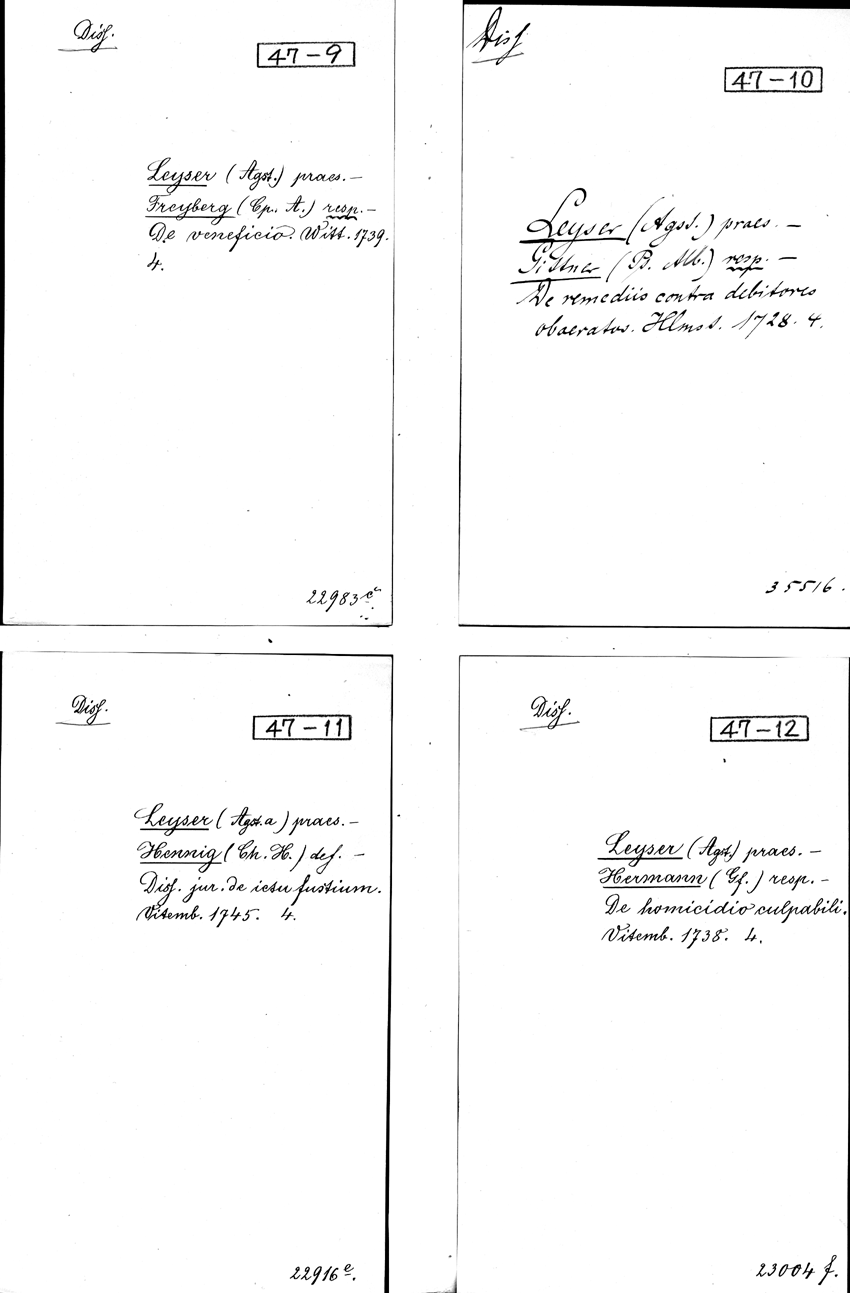 Diss.
47-9
Leyser (Agst.) praes. —
Freyberg (Cp. A.) resp. —
De veneficio. Witt. 1739.
4.
22983 c.
Diss
47-10
Leyser (Agst.) praes. —
(B. Alb.) resp. —
De remediis contra debitores
obaeratos. Hlmst. 1728. 4.
35516.
Diss.
47-11
Leyser (Agst. a) praes. —
Hennig (Ch. H.) def. —
Diss. jur. de ictu fustium.
Vitemb. 1745. 4.
22916 e.
Diss.
47-12
Leyser (Agst.) praes. —
Hermann (Gf.) resp. —
De homicidio culpabili.
Vitemb. 1738. 4.
23004 f.